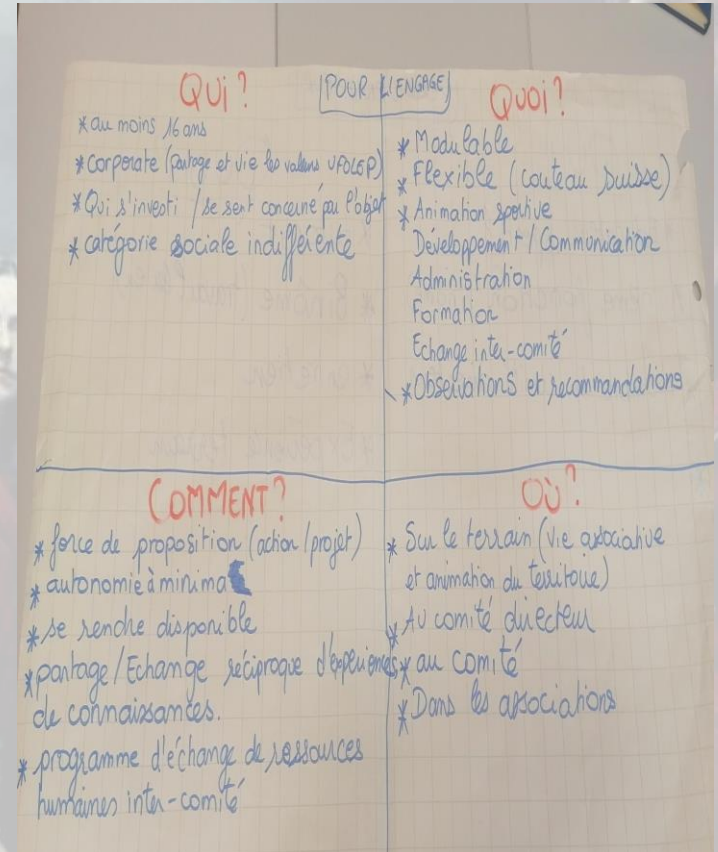 POUR L'ENGAGE
QUI?
* au moins 16 ans
* corporate (partage et vie les valeurs UFOLEP)
* Qui s'investi / se sent concerné par l'objet
* catégorie sociale indifférente
QUOI?
* Modulable
* Flexible (couteau suisse)
* Animation sportive
Développement / Communication
Administration
Formation
Echange inter-comité
* Observations et recommandations
COMMENT?
* force de proposition (action / projet)
* autonomie à minima
* se rendre disponible
* partage / Echange réciproque d'expériences
de connaissances.
* programme d'échange de ressources
humaines inter-comité
OÙ?
* Sur le terrain (vie associative
et animation du territoire)
* Au comité directeur
* au comité
* Dans les associations